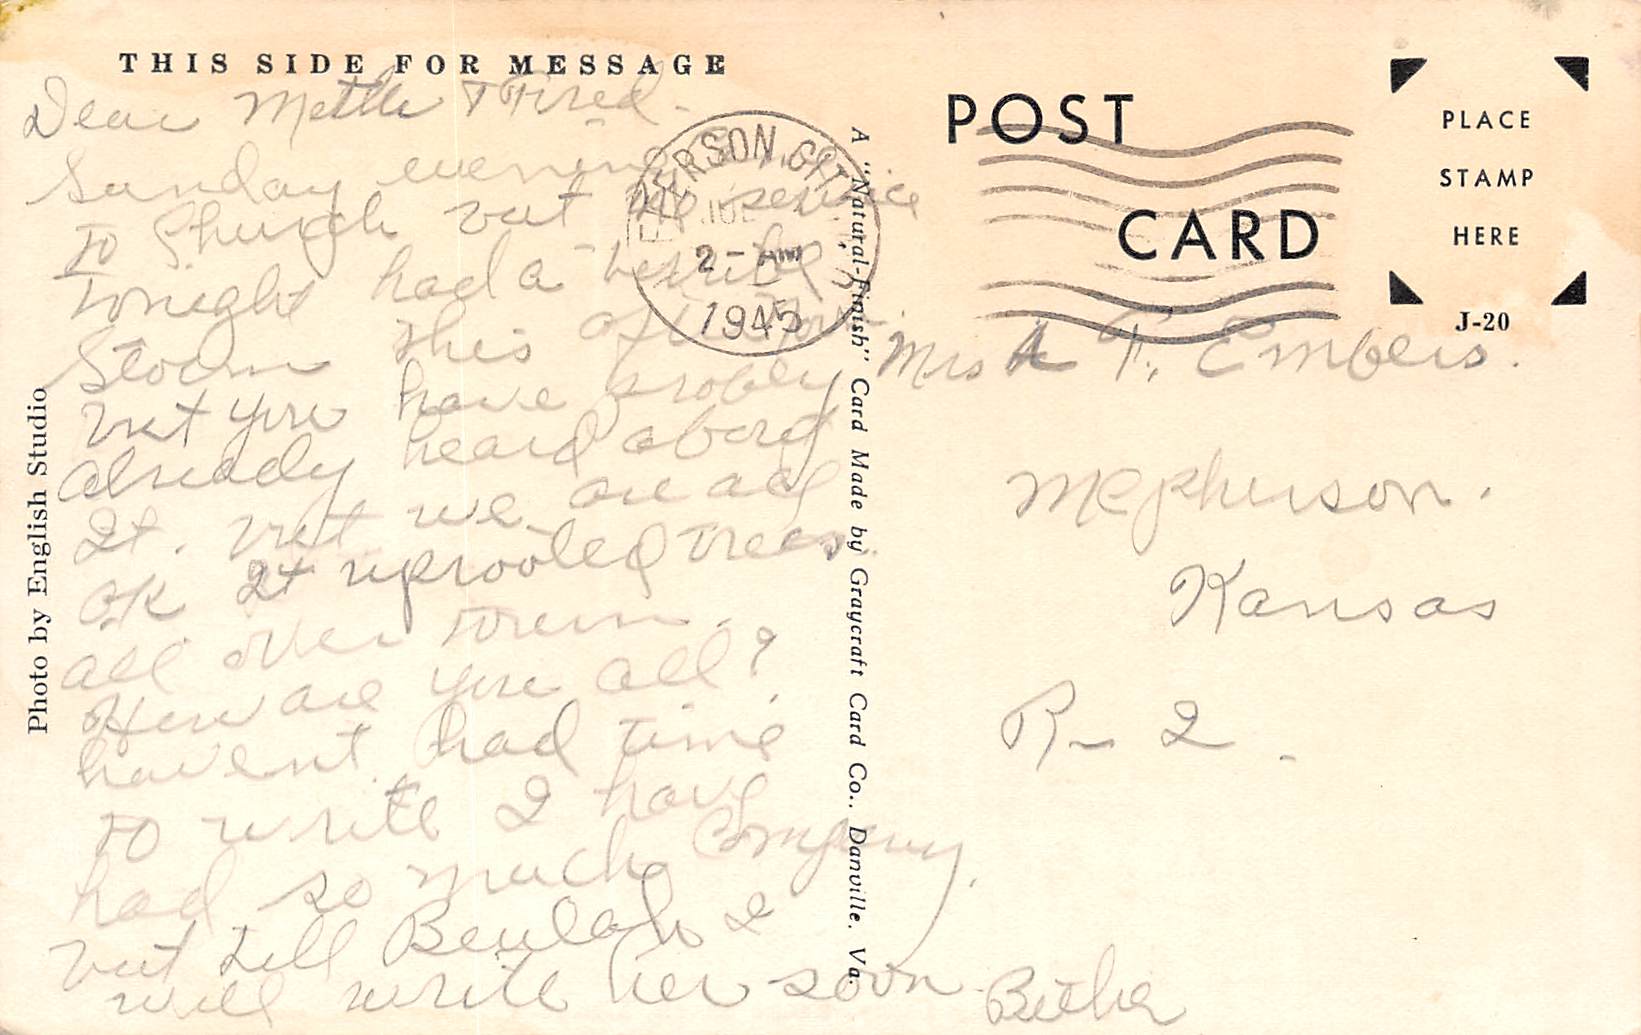 THIS SIDE FOR MESSAGE
Dear Mettie & Fred.
Sunday evening
to Church but no service
tonight had a terrible
Storm this afternoon.
but you have probly
already heard about
It. but we are all
OK It uprooted trees
all over town.
How are you all?
havent had time
to write I have
had so much Company.
but tell Beulah I
will write her soon
Photo by English Studio
2-AM
1945
A "Natural-Finish" Card Made by Graycraft Card Co., Danville, Va.
POST
CARD
PLACE
STAMP
HERE
J-20
Mrs A F. Embers.
McPherson.
Kansas
R-2.